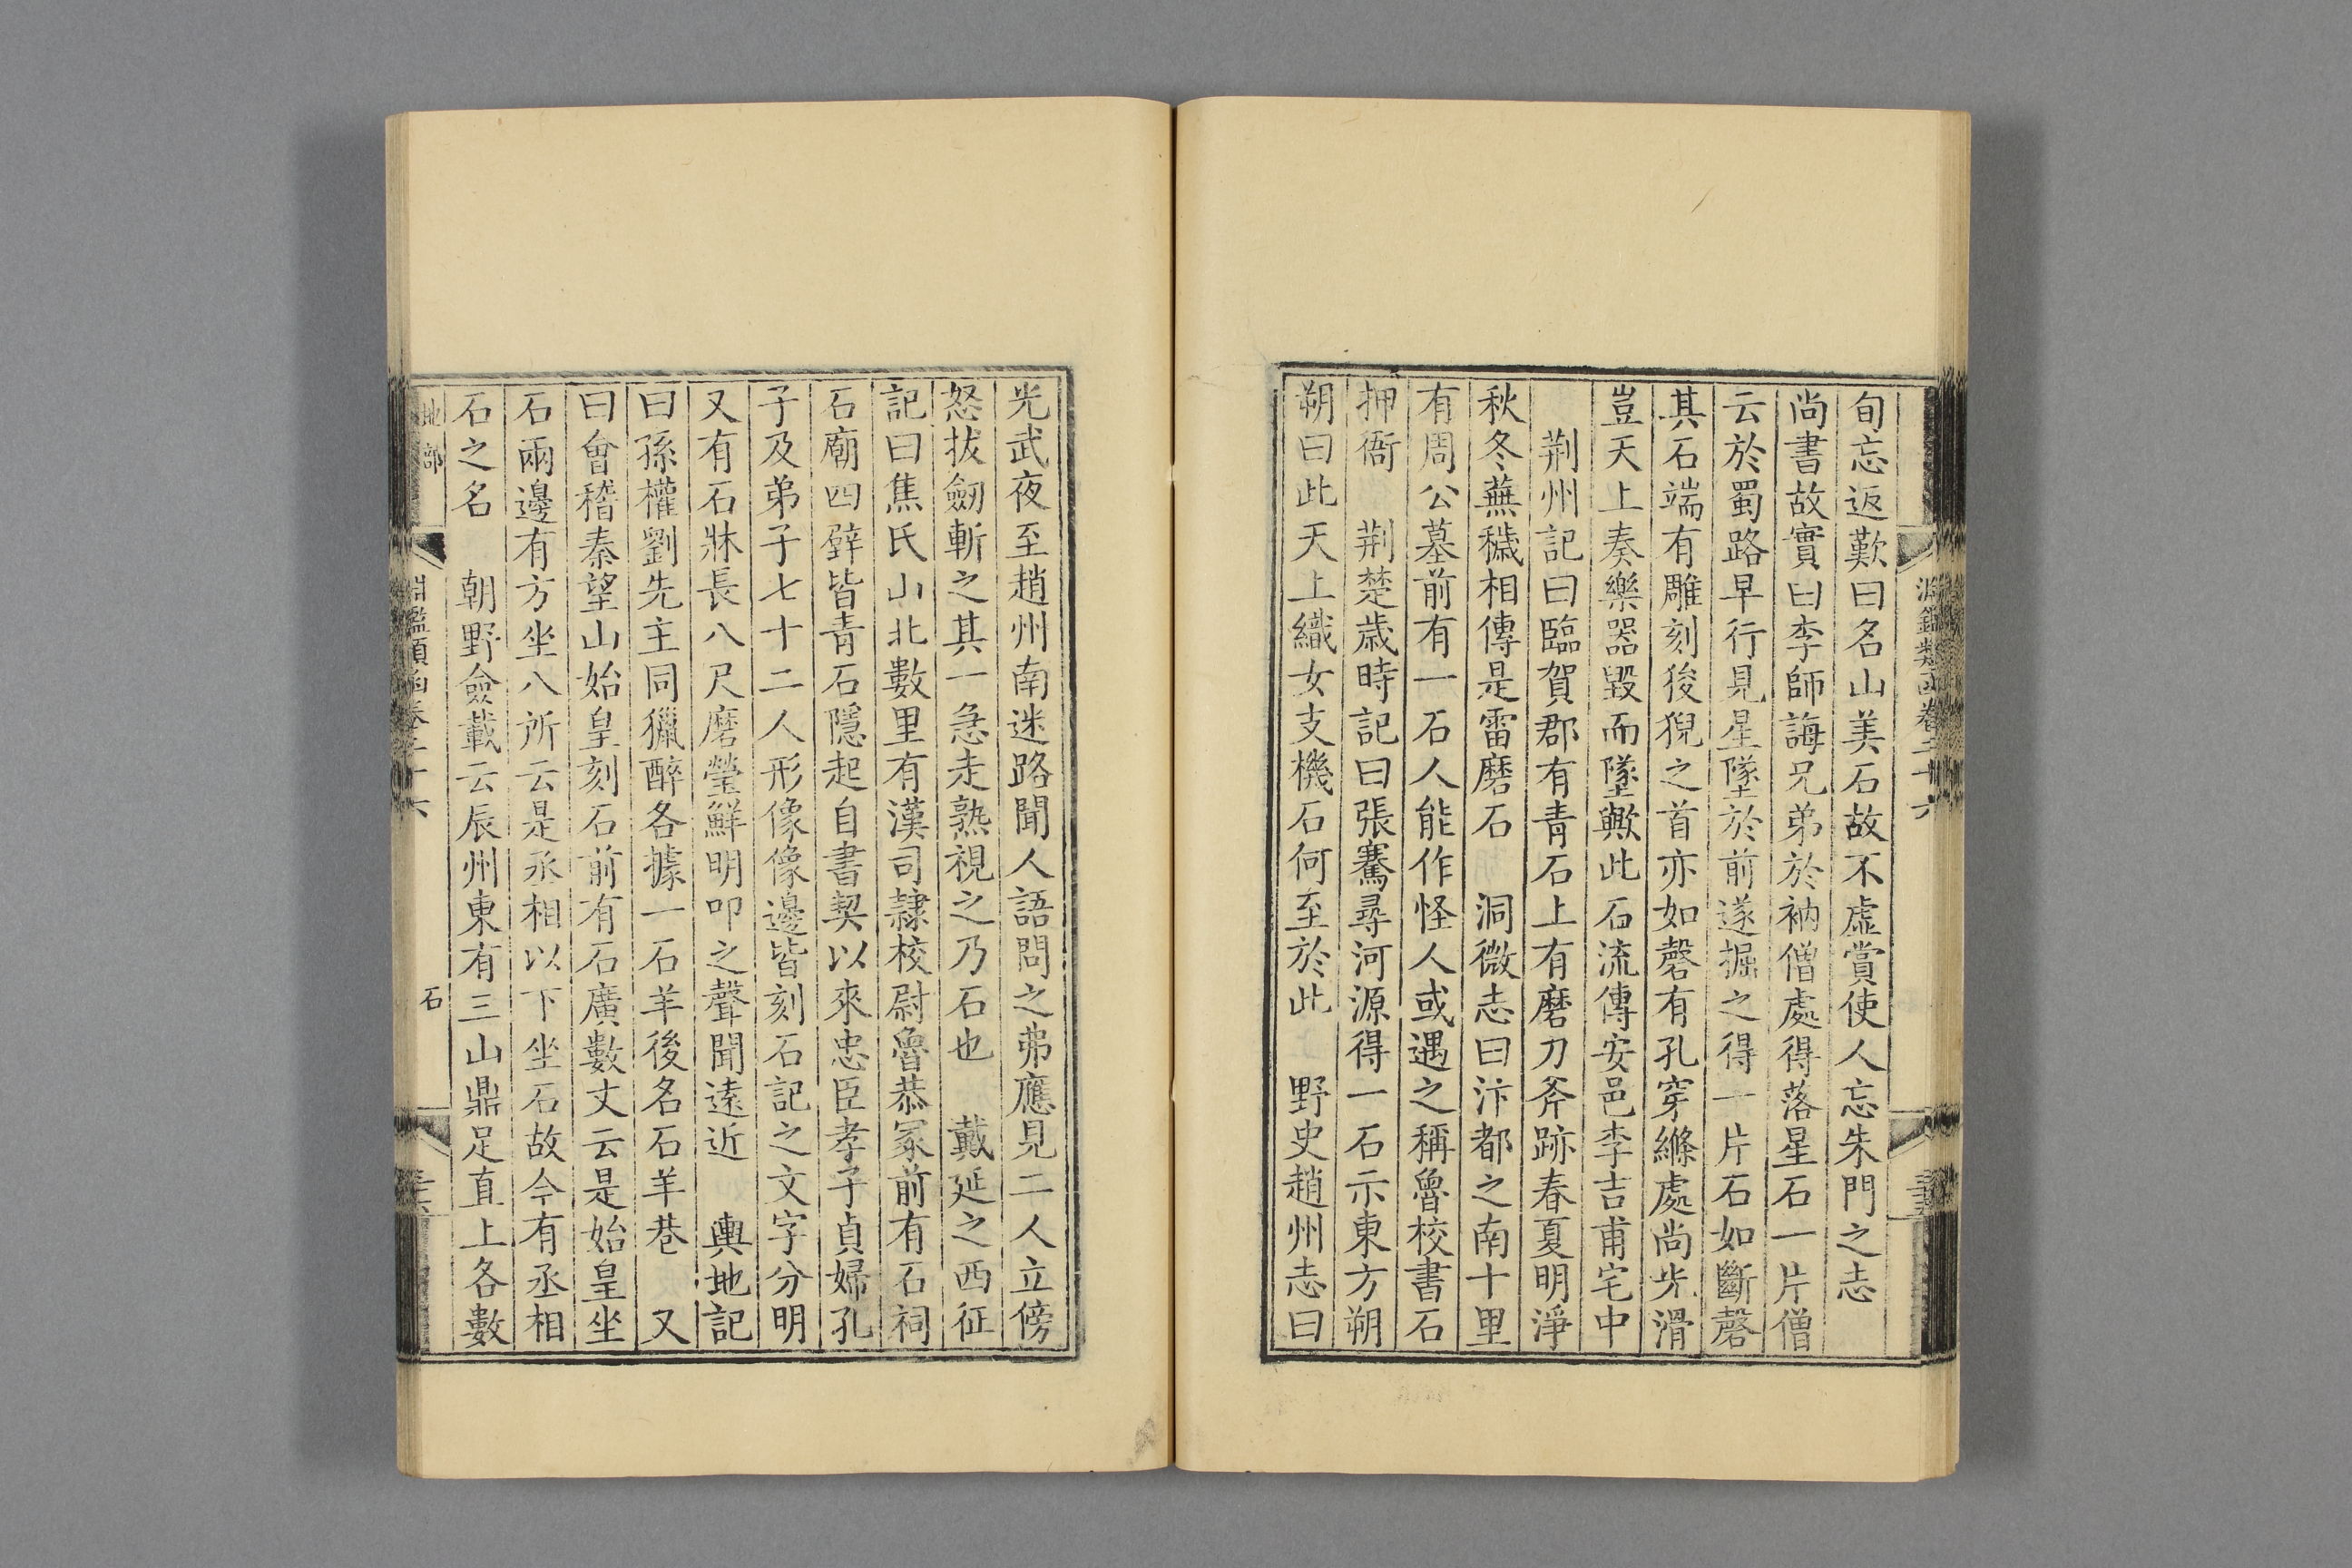 淵鑑類函卷二十六
旬忘返歎曰名山美石故不虛賞使人忘朱門之志
尚書故實曰李師誨兄弟於衲僧處得落星石一片僧
云於蜀路早行見星墜於前遂掘之得一片石如斷磬
其石端有雕刻狻猊之首亦如磬有孔穿絛處尚光滑
豈天上奏樂器毀而墜歟此石流傳安邑李吉甫宅中
荆州記曰臨賀郡有青石上有磨刀斧跡春夏明淨
秋冬蕪穢相傳是雷磨石　洞微志曰汴都之南十里
有周公墓前有一石人能作怪人或遇之稱魯校書石
押衙　荆楚歲時記曰張騫尋河源得一石示東方朔
朔曰此天上織女支機石何至於此　野史趙州志曰
光武夜至趙州南迷路聞人語問之弗應見二人立傍
怒拔劒斬之其一急走熟視之乃石也　戴延之西征
記曰焦氏山北數里有漢司隸校尉魯恭冢前有石祠
石廟四壁皆青石隱起自書契以來忠臣孝子貞婦孔
子及弟子七十二人形像像邊皆刻石記之文字分明
又有石牀長八尺磨瑩鮮明叩之聲聞遠近　輿地記
曰孫權劉先主同獵醉各據一石羊後名石羊巷　又
曰會稽秦望山始皇刻石前有石廣數丈云是始皇坐
石兩邊有方坐八所云是丞相以下坐石故今有丞相
石之名　朝野僉載云辰州東有三山鼎足直上各數
地部
淵鑑類函卷二十六
石